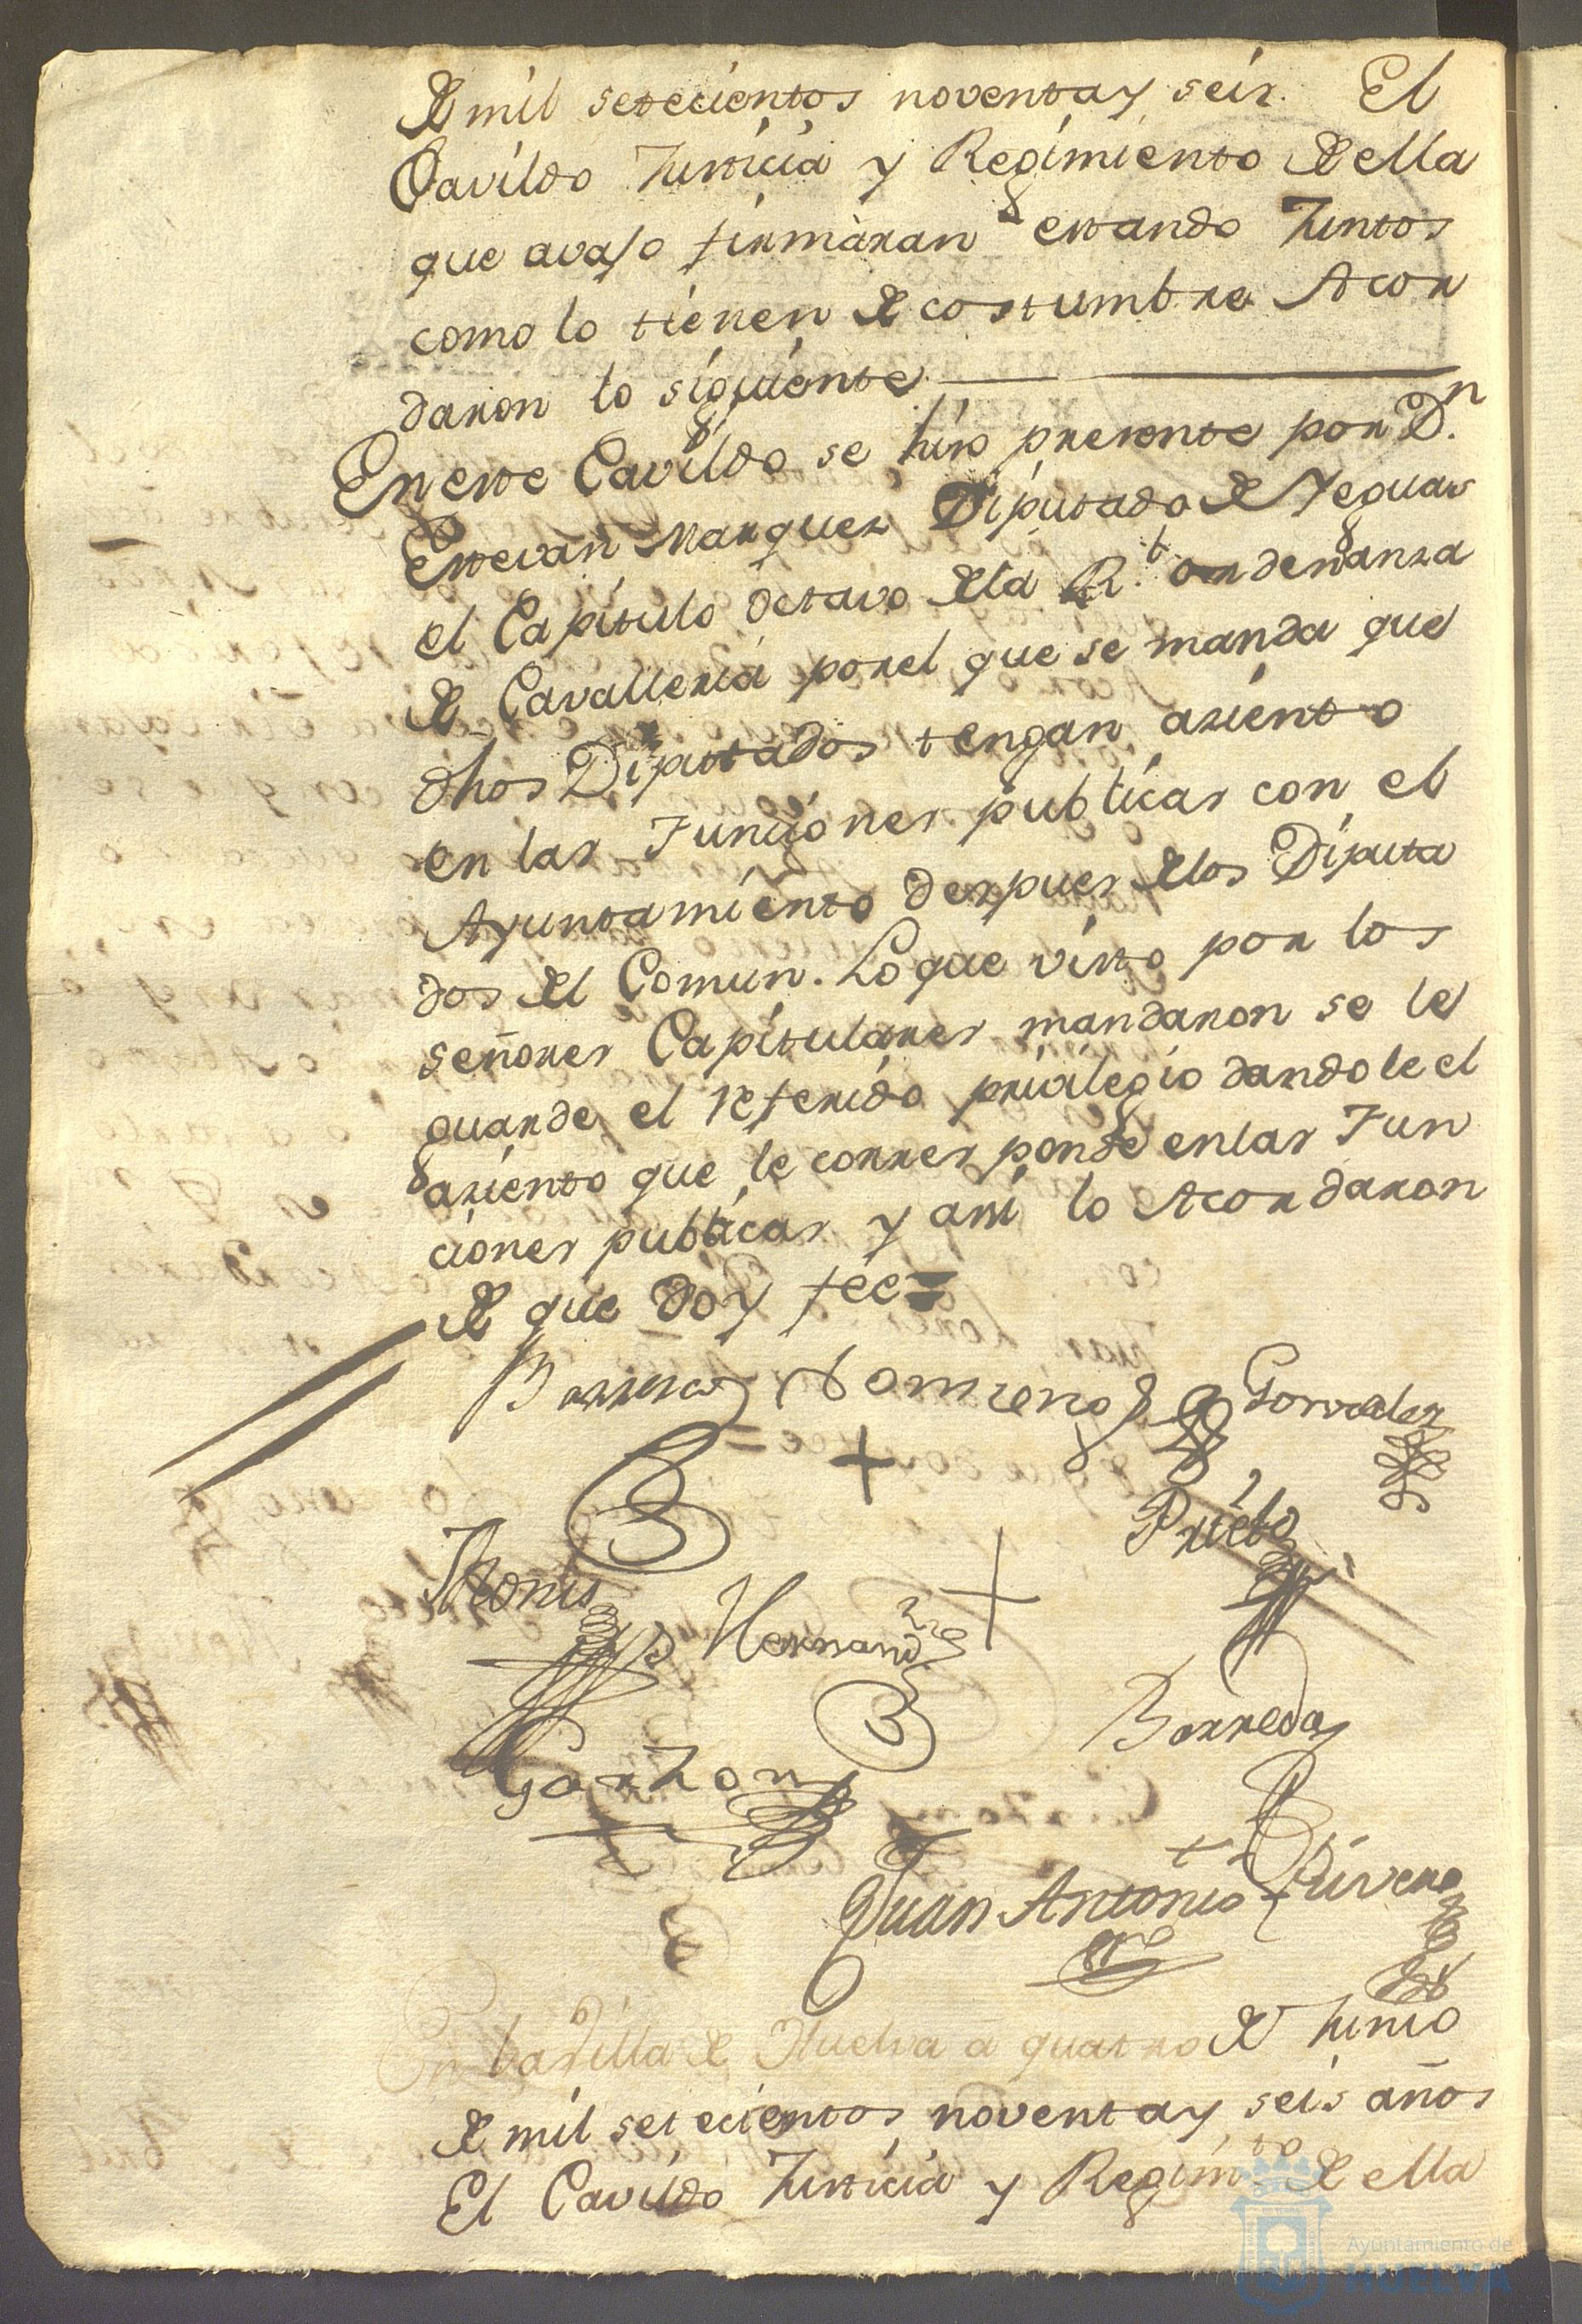 de mil setecientos noventa y seis. El
Cavildo Justicia y Regimiento de ella
que avajo firmàran estando Juntos
como lo tienen de costumbre Acor
daron lo siguiente
En este Cavildo se hizo presente por Dn.
Estevan Marquez Diputado de Yeguas
el Capitulo octavo de la Rl. ordenanza
de Cavalleria por el que se manda que
dhos Diputados tengan asiento
en las Funciones publicas con el
Ayuntamiento despues de los Diputa
dos del Comun. Lo que visto por los
señores Capitulares mandaron se le
guarde el referido privilegio dandole el
asiento que le corresponde en las Fun
ciones publicas y assi lo Acordaron
de que doy fee=
Barrera Gonzalez
Prieto
Hernandz
Barreda
Garzon
Juan Antonio Rivera
En la Villa de Huelva a quatro de Junio
de mil setecientos noventa y seis años
El Cavildo Justicia y Regimto de ella
Ayuntamiento de
HUELVA